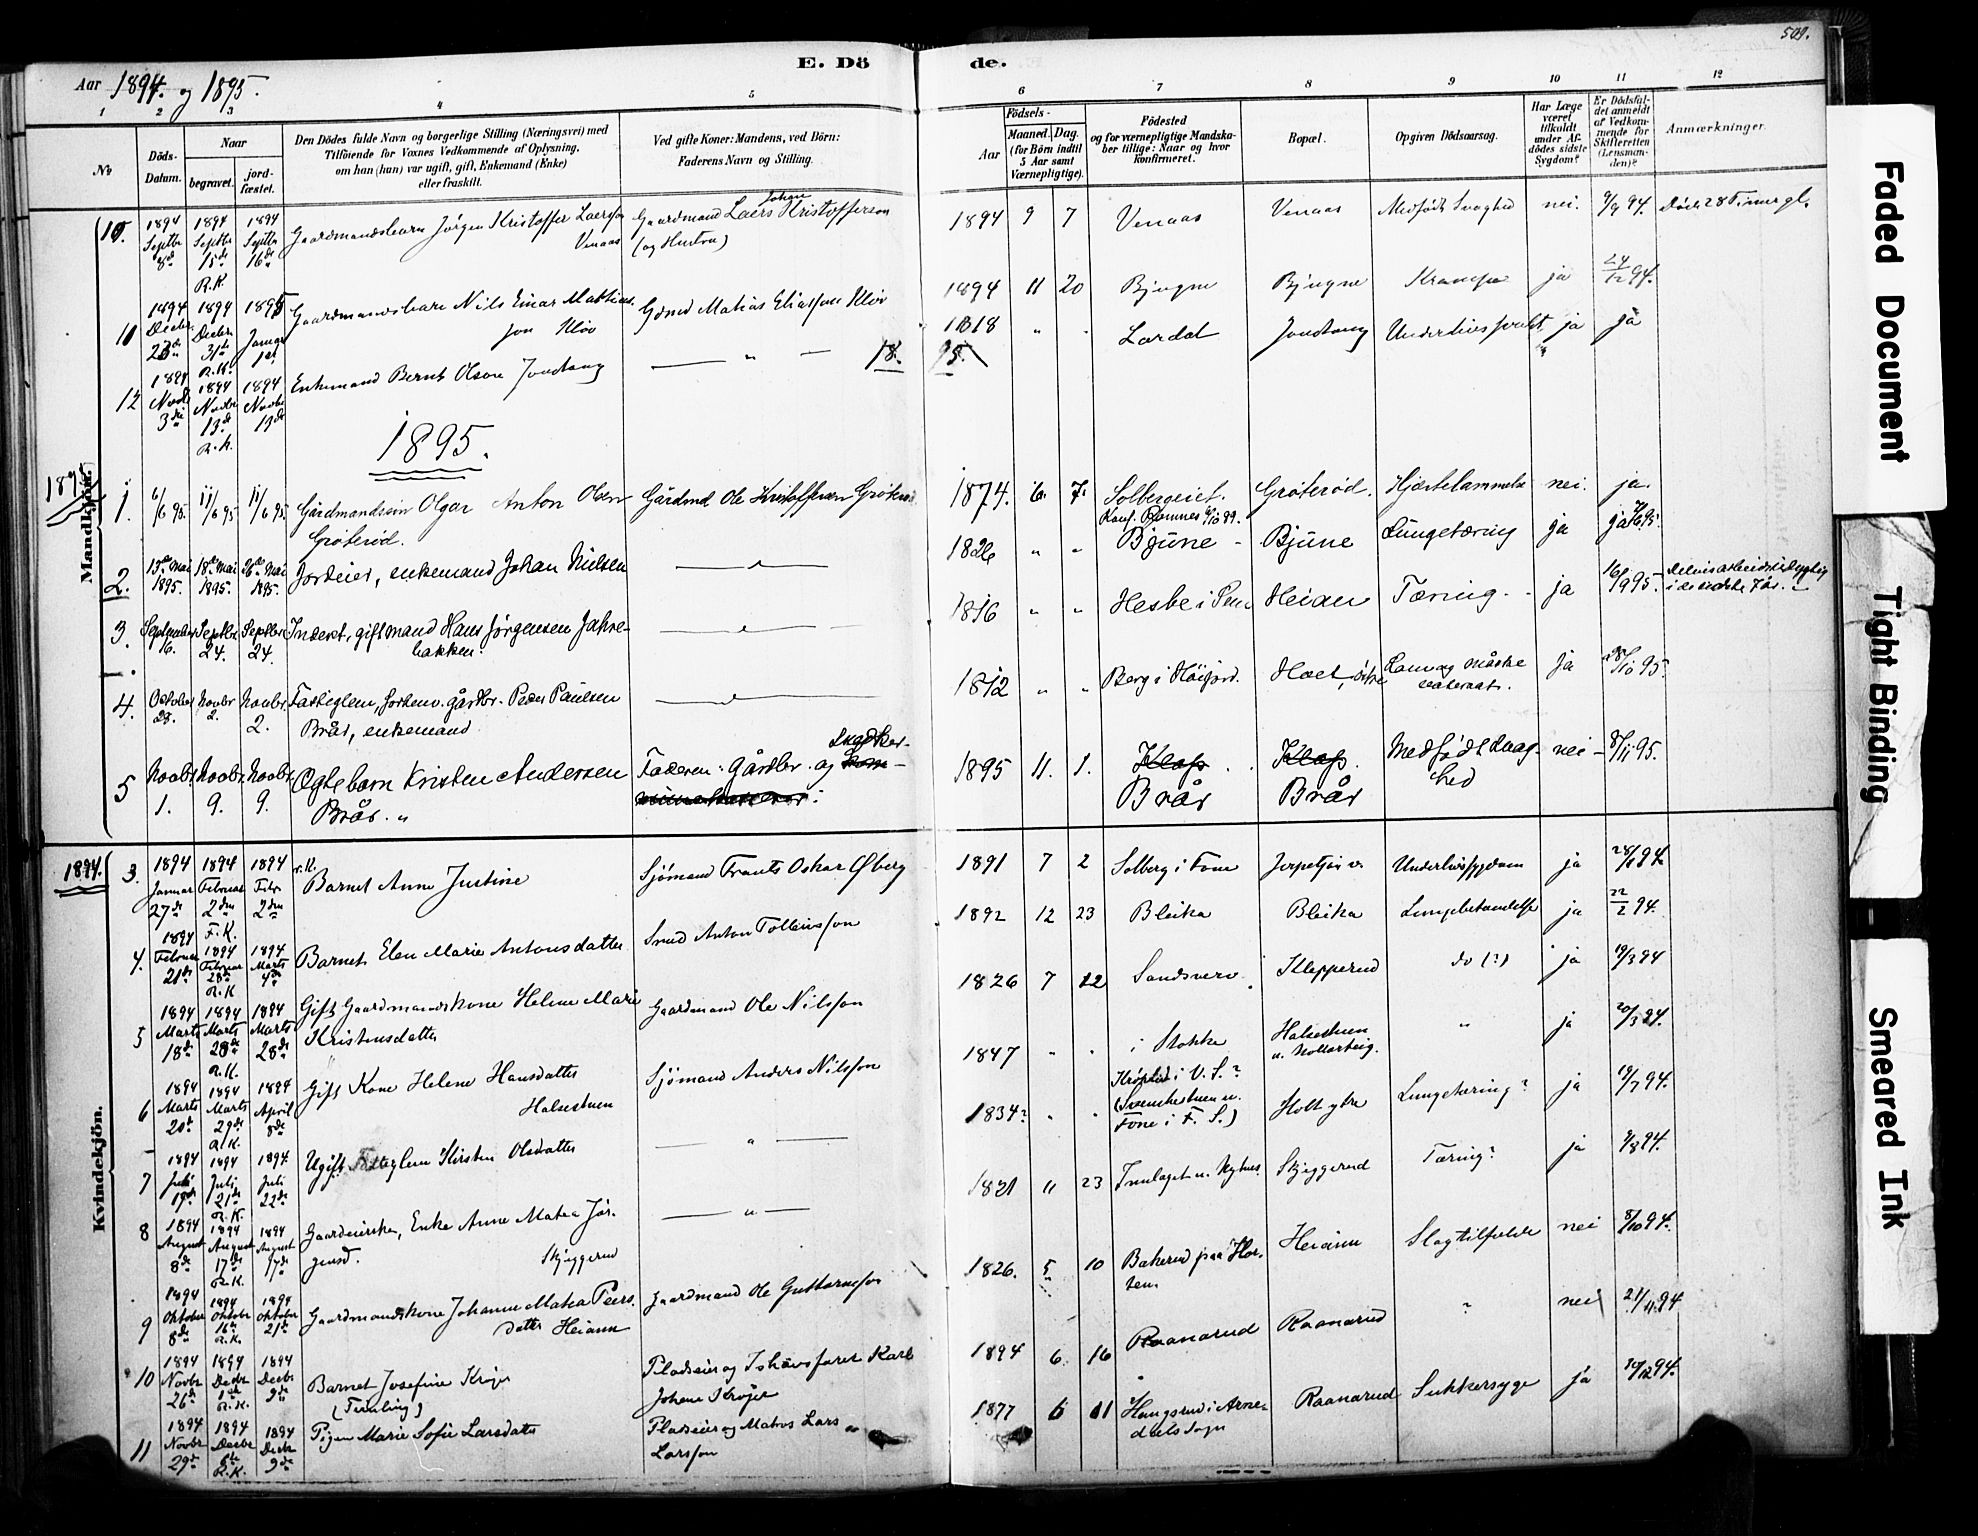 509.
E. Döde.
Aar 1894. og 1895.
1 2 3 4 5 6 7 8 9 10 11 12
No
Döds-Datum.
Naar
begravet.
jord-fæstet.
Den Dödes fulde Navn og borgerlige Stilling (Næringsvei) med
Tilföiende for Voxnes Vedkommende af Oplysning,
om han (hun) var ugift, gift, Enkemand (Enke)
eller fraskilt.
Ved gifte Koner: Mandens, ved Börn:
Faderens Navn og Stilling.
Födsels-
Aar
Maaned. Dag.
(for Börn indtil
5 Aar samt
Værnepligtige).
Födested
og for værnepligtige Mandska-
ber tillige: Naar og hvor
konfirmeret.
Bopæl.
Opgiven Dödsaarsag.
Har Læge
været
tilkaldt
under Af-
dödes sidste
Sygdom?
Er Dödsfal-
det anmeldt
af Vedkom-
mende for
Skifteretten
(Lensman-
den)?
Anmærkninger.
Mandkjön.
10. 1894 Septbr 8de 1894 Septbr 15de R.K. 1894 Septbr 16de Gaardmandsbarn Jørgen Kristoffer Laersson Venaas Gaardmand Laers Johan Kristofferson (og Hustru) 1894 9 7 Venaas Venaas Medfödt Svaghed nei. 9/9 94. Död 28 Timer gl.
11 1894 Decbr 23de 1894 Decbr 31te R.K. 1895 Januar 1ste Gaardmandsbarn Nils Einar Mathias-
son Kløv Gdmd Matias Eliasson Kløv 1894 11 20 Bjugne Bjugne Krampe ja 24/12 94.
12 1894 Novbr 3die 1894 Novbr 13de R.K. 1894 Novbr 13de Enkemand Bernt Olson Jondtang — " — 1818 " " Lardal Jondtang ja ja
18. 95.
1895.
1895
1. 6/6 95. 11/6 95 11/6 95. Gårdmandssön Olgar Anton Olsen
Gröteröd. Gårdmd Ole Kristoffersen Gröteröd 1874. 6. 7. Solbergeiet.
Konf. Ramnes 6/10 89. Gröteröd. Hjertelammelse nei. ja.
2. 13de Mai 1895. 18de Mai 1895. 26de Mai 1895. Jordeier, enkemand Johan Nielsen — " — 1826 " " Bjüne - Bjüne Lüngetæring ja ja
3. September 16. Septbr. 24. Septbr. 24. Inderst, gift mand Hans Jørgensen Jahre-
bakken. — " — 1816 " " Hesbe i Heian Tæring. ja 16/9 95. i de sidste 7 år.
4. October 28. Novbr 2. Novbr. 2. Fattiglem, forhenv. gårdbr. Peder Paulsen
Brår, enkemand — " — 1812 " " Berg i Höijord. Hoet, østre ja 28/10 95.
5 Novbr. 1. Novbr. 9. Novbr. 9. Ægte barn Kristen Andersen
Brår. " Faderen: gårdbr. og 1895 11. 1. Klop.
Brår Klop.
Brår Medfödt svag-
hed nei 8/11 95.
1894.
Kvindekjön.
3. 1894 Januar 27de 1894 Februar 2den F.K. 1894 Febr 2den Barnet Anne Justine Sjömand Frants Oskar Øberg 1891 7 2 Solberg i Fone Underlivssygdom ja 28/1 94
4. 1894 Februar 21de 1894 Februar 28de R.K 1894 Marts 4de Barnet Elen Marie Antonsdatter Smed Anton Tollevsson 1892 12 23 Bleika Bleika Lungebetændelse ja 22/2 94.
5 1894 Marts 18de 1894 Marts 28de R.K. 1894 Marts 28de Gift Gaardmandskone Helene Marie
Kristensdatter Gaardmand Ole Nilsson 1826 7 12 Sandsverv. Klepperud do (?) ja 19/3 94
6 1894 Marts 20de 1894 Marts 29de R.K. 1894 April 8de Gift Kone Helene Hansdatter
Halsestuen Sjömand Anders Nilsson 1847 " " i Stokke Halsestuen " ja 20/3 94.
7 1894 Juli 17de 1894 Juli 21de R.K. 1894 Juli 22de Ugift Fattiglem Kirsten Olsdatter — " — 1834? " " i V. S.?
(Svenskestuen u.
Fone i F. S.) Holt ytre Lungetæring? ja 19/7 94.
8 1894 August 8de 1894 August 17de R.K. 1894 August 17de Gaardeierske, Enke Anne Matea Jör-
gensd. Skjeggerud — " — 1821 11 23 Skjeggerud Tæring? ja 9/8 94.
9 1894 Oktober 8de 1894 Oktober 16de R.K. 1894 Oktober 21de Gaardmandskone Johanne Matea Peers-
datter Heiann Gaardmand Ole Guttormsson 1826. 5 10 Bakerud paa Hor-
ten. Heiann Slagtilfælde nei 8/10 94.
10 1894 Novbr 26de 1894 Decbr 1ste R.K. 1894 Decbr 9de Barnet Josefine Krøjer
(Tvilling) Pladseier og Ishavsfarer Karl
Johan Krøjer 1894 6 16 Raanarud Raanarud ? nei 21/11 94
11 1894 Novbr 29de 1894 Decbr 5te R.K. 1894 Decbr 9de Pigen Marie Sofie Larsdatter Pladseier og Matros Lars
Larsson 1877 6 11 Haugsrud i Arne-
dals Sogn Raanarud Sukkersyge ja 10/12 94.
Faded Document
Tight Binding
Smeared Ink